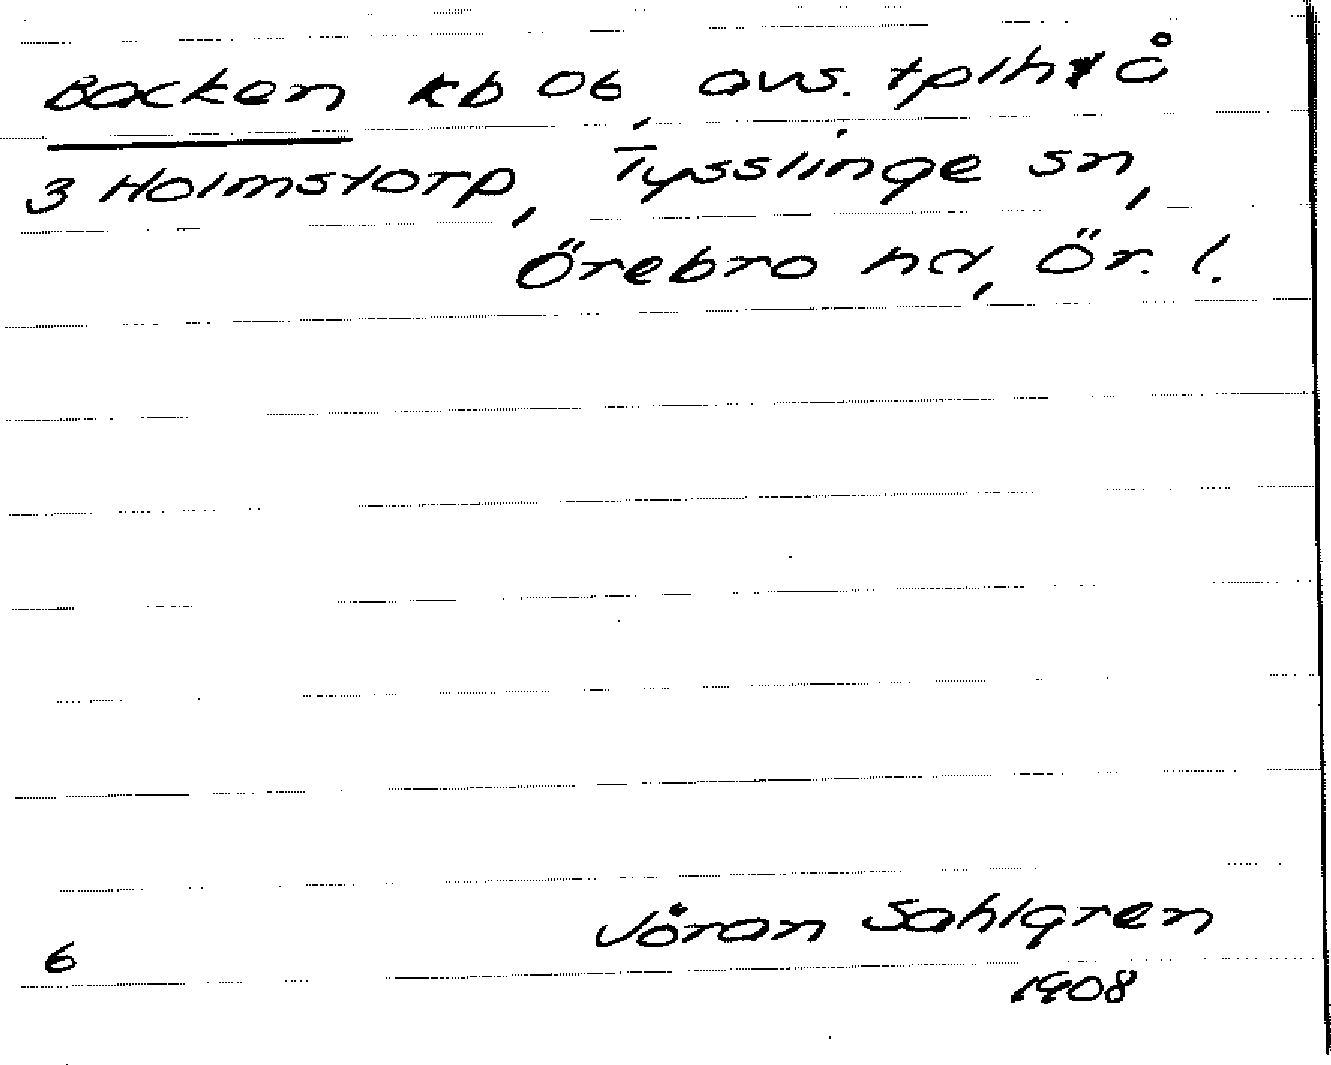 Backen kb 06, avs. tplht å
3 Holmstorp, Tysslinge sn,
Örebro hd, Ör. l.
Jöran Sahlgren
6
1908